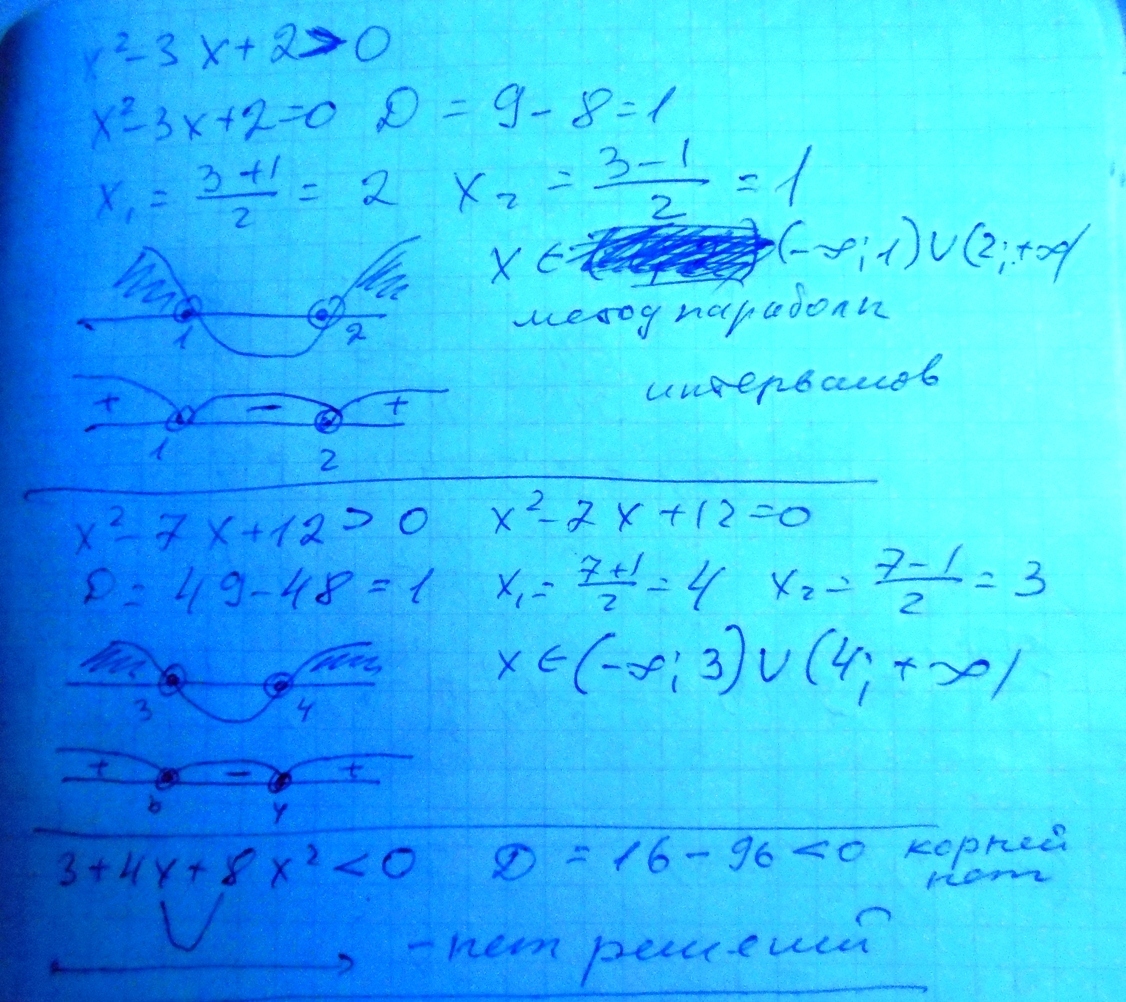 x²-3x+2>0
x²-3x+2=0 D = 9-8=1
x₁ = (3+1)/2 = 2 x₂ = (3-1)/2 = 1
x ∈ (-∞; 1) ∪ (2; +∞)
1 2
метод параболы
интервалов
+ - +
1 2
x²-7x+12>0 x²-7x+12=0
D = 49-48=1 x₁= (7+1)/2 = 4 x₂= (7-1)/2 = 3
x ∈ (-∞; 3) ∪ (4; +∞)
3 4
+ - +
4
3+4x+8x²<0 D = 16-96<0 корней
нет
-нет решений